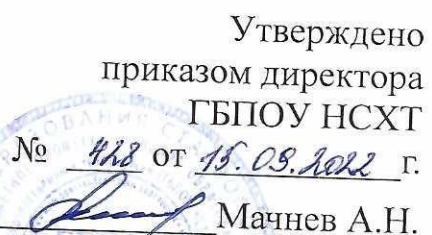 Утверждено
приказом директора
ГБПОУ НСХТ
№ 428 от 15.09.2022 г.
Мачнев А.Н.